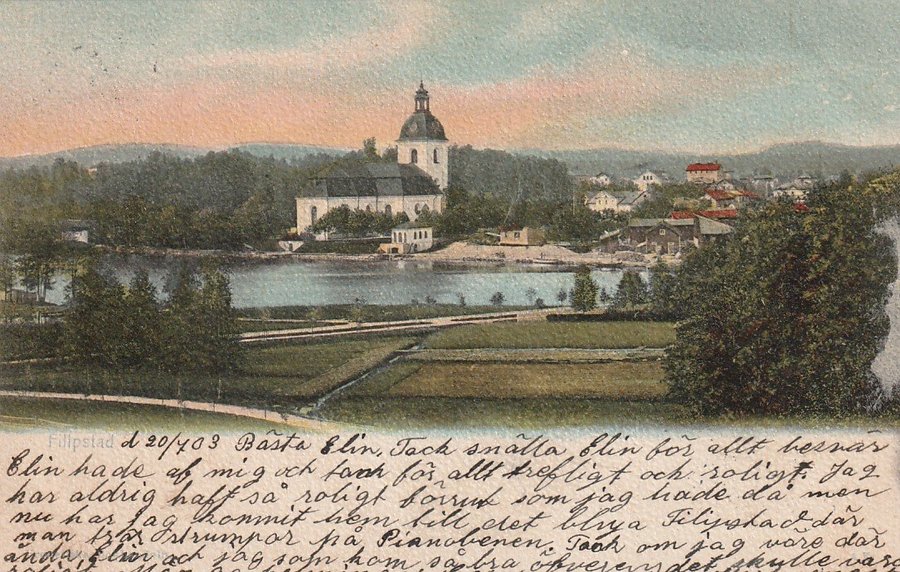 Filipstad d 20/7 03 Bästa Elin, Tack snälla Elin för allt besvär
Elin hade af mig och tack för allt trefligt och roligt. Jag
har aldrig haft så roligt förrut som jag hade då men
nu har jag kommit hem till det blya Filipstad där
man trär strumpor på Pianobenen, Tack om jag vore där
ändå, Elin och jag som kom så bra öfverens det skulle vara